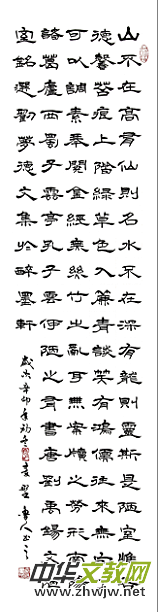 山不在高有仙則名水不在深有龍則靈斯是陋室惟吾
德馨苔痕上階綠草色入簾青談笑有鴻儒往來無白丁
可以調素琴閱金經無絲竹之亂耳無案牘之勞形南陽
諸葛廬西蜀子雲亭孔子云何陋之有書唐劉禹錫陋
室銘選劉夢德文集於醉墨軒
歲次辛卯年初冬
中华文教网
www.zhwjw.net